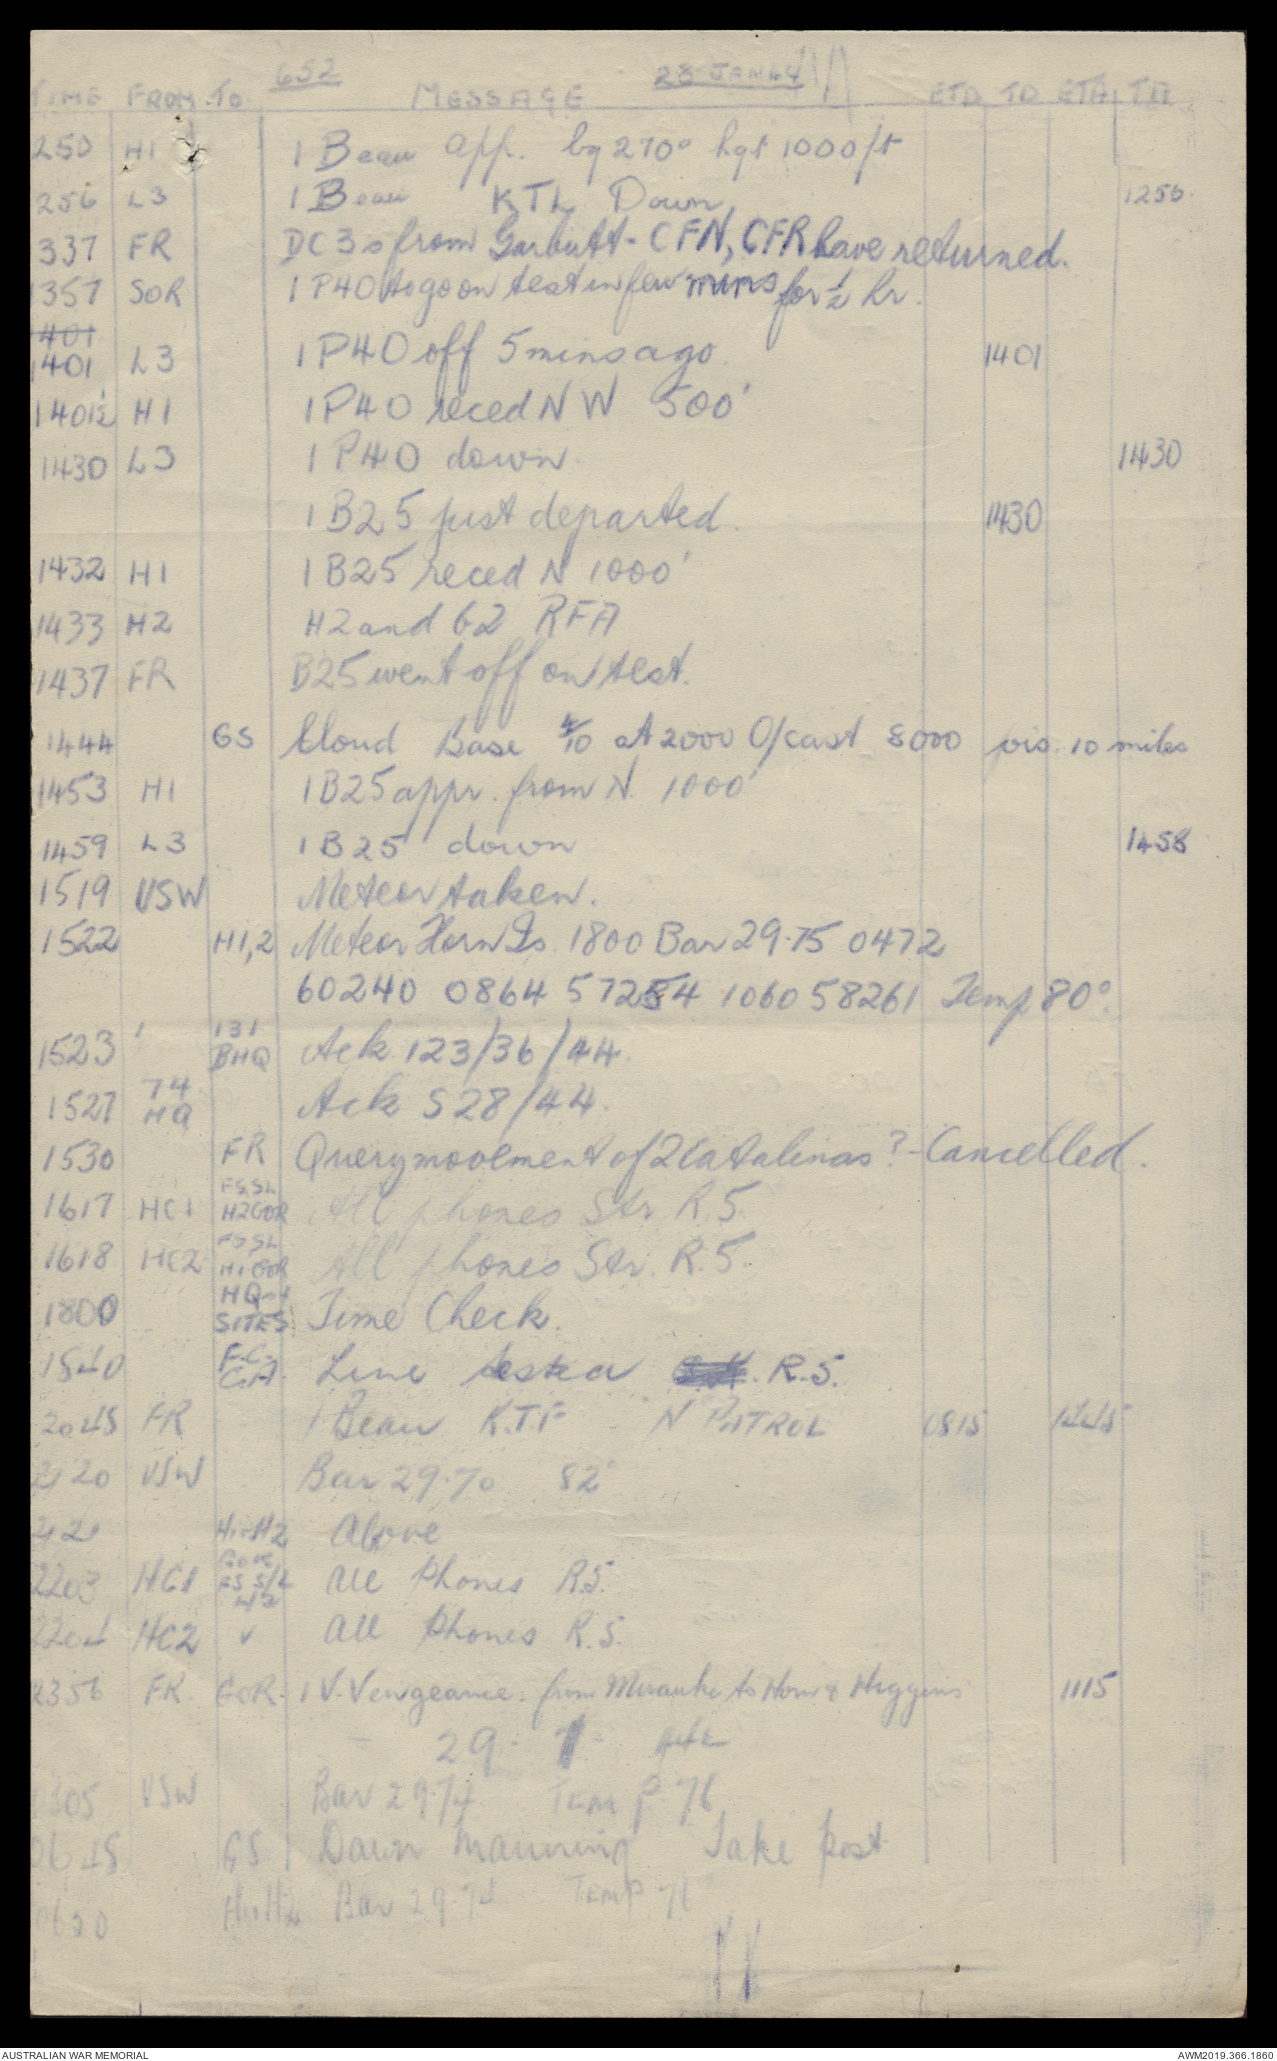 652 28 JAN 44
TIME FROM TO MESSAGE ETD TD ETA TA
250 H1 1 Beau app. bg 270° hgt 1000 ft
256 L3 1 Beau KTL Down 1256
337 FR DC3s from Garbutt - CFN, CFR have returned.
1357 GOR 1 P40 to go on test in few mins for ½ hr.
1401
1401 L3 1 P40 off 5 mins ago 1401
1401½ H1 1 P40 reced N W 500'
1430 L3 1 P40 down 1430
1 B25 just departed. 1430
1432 H1 1 B25 reced N 1000'
1433 H2 H2 and G2 RFA
1437 FR B25 went off on test.
1444 GS Cloud Base 4/10 at 2000 O/cast 8000 vis. 10 miles
1453 H1 1 B25 appr. from N. 1000'
1459 L3 1 B25 down 1458
1519 VSW Meteor taken.
1522 H1,2 Meteor Horn Is. 1800 Bar 29.75 0472
60240 0864 57254 1060 58261 Temp 80°.
1523 131
BHQ Ack 123/36/44.
1527 74
HQ Ack S28/44.
1530 FR Query movement of 2 Catalinas? - Cancelled.
1617 HC1 FSSL
H2GOR All phones Str. R.5
1618 HC2 FSSL
H1GOR All phones Str. R.5.
1800 HQ
SITES Time Check.
1840 C.A. Line tested R.5.
2048 FR 1 Beau K.T.F N PATROL 0815
2120 VSW Bar 29.70 82°
H1-H2 Above
2203 HC1 GOR
FS S/L All Phones R.5.
2204 HC2 All Phones R.5.
2356 FR GOR. 1 V. Vengeance. from Merauke to Horn & Higgins 1115
29. 1. 44
VSW Bar 29.74 Temp 76
0645 GS Dawn Manning Take Post
Bar 29.74 Temp 76
AUSTRALIAN WAR MEMORIAL AWM2019.366.1860